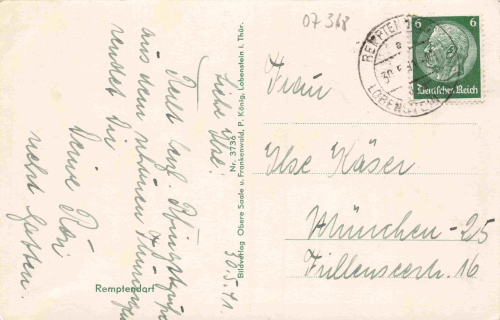 30.5.41.
Liebe Ilse!
Recht herzl. Pfingstgrüße
aus dem schönen Thüringen
sendet Dir
Deine Rösi
nebst Gatten.
Remptendorf
Nr. 3736
Bildverlag Obere Saale u. Frankenwald, P. König, Lobenstein i. Thür.
07 368
6 6
Deutsches Reich
LOBENSTEIN
Frau
Ilse Käser
München-25
Füllenseestr. 16